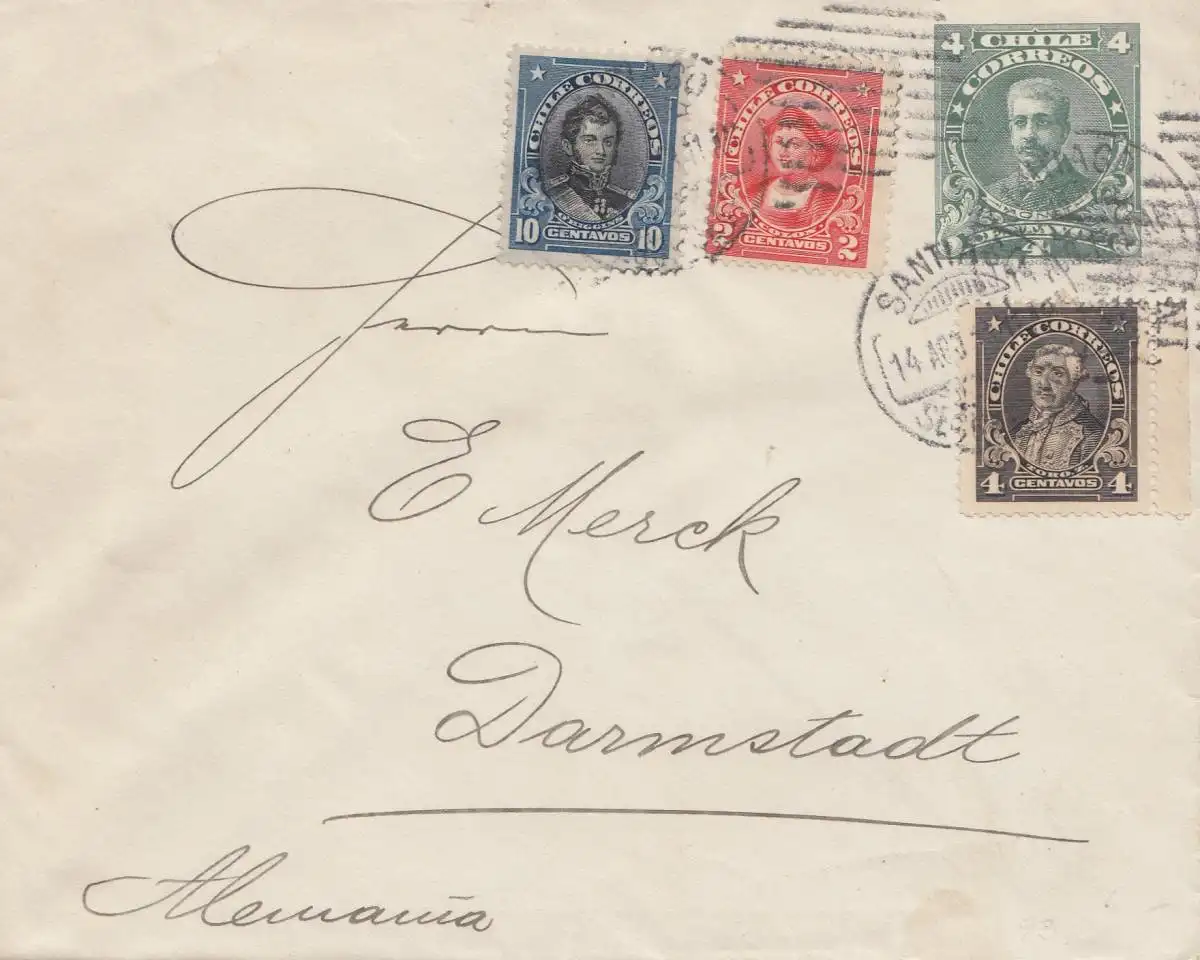 CHILE CORREOS
10 CENTAVOS 10
CHILE CORREOS
COLON
2 CENTAVOS 2
4 CHILE 4
CORREOS
CENTAVOS
4
SANTIAGO
14 AGO
CHILE CORREOS
TORO Z.
4 CENTAVOS 4
Herrn
E Merck
Darmstadt
Alemania